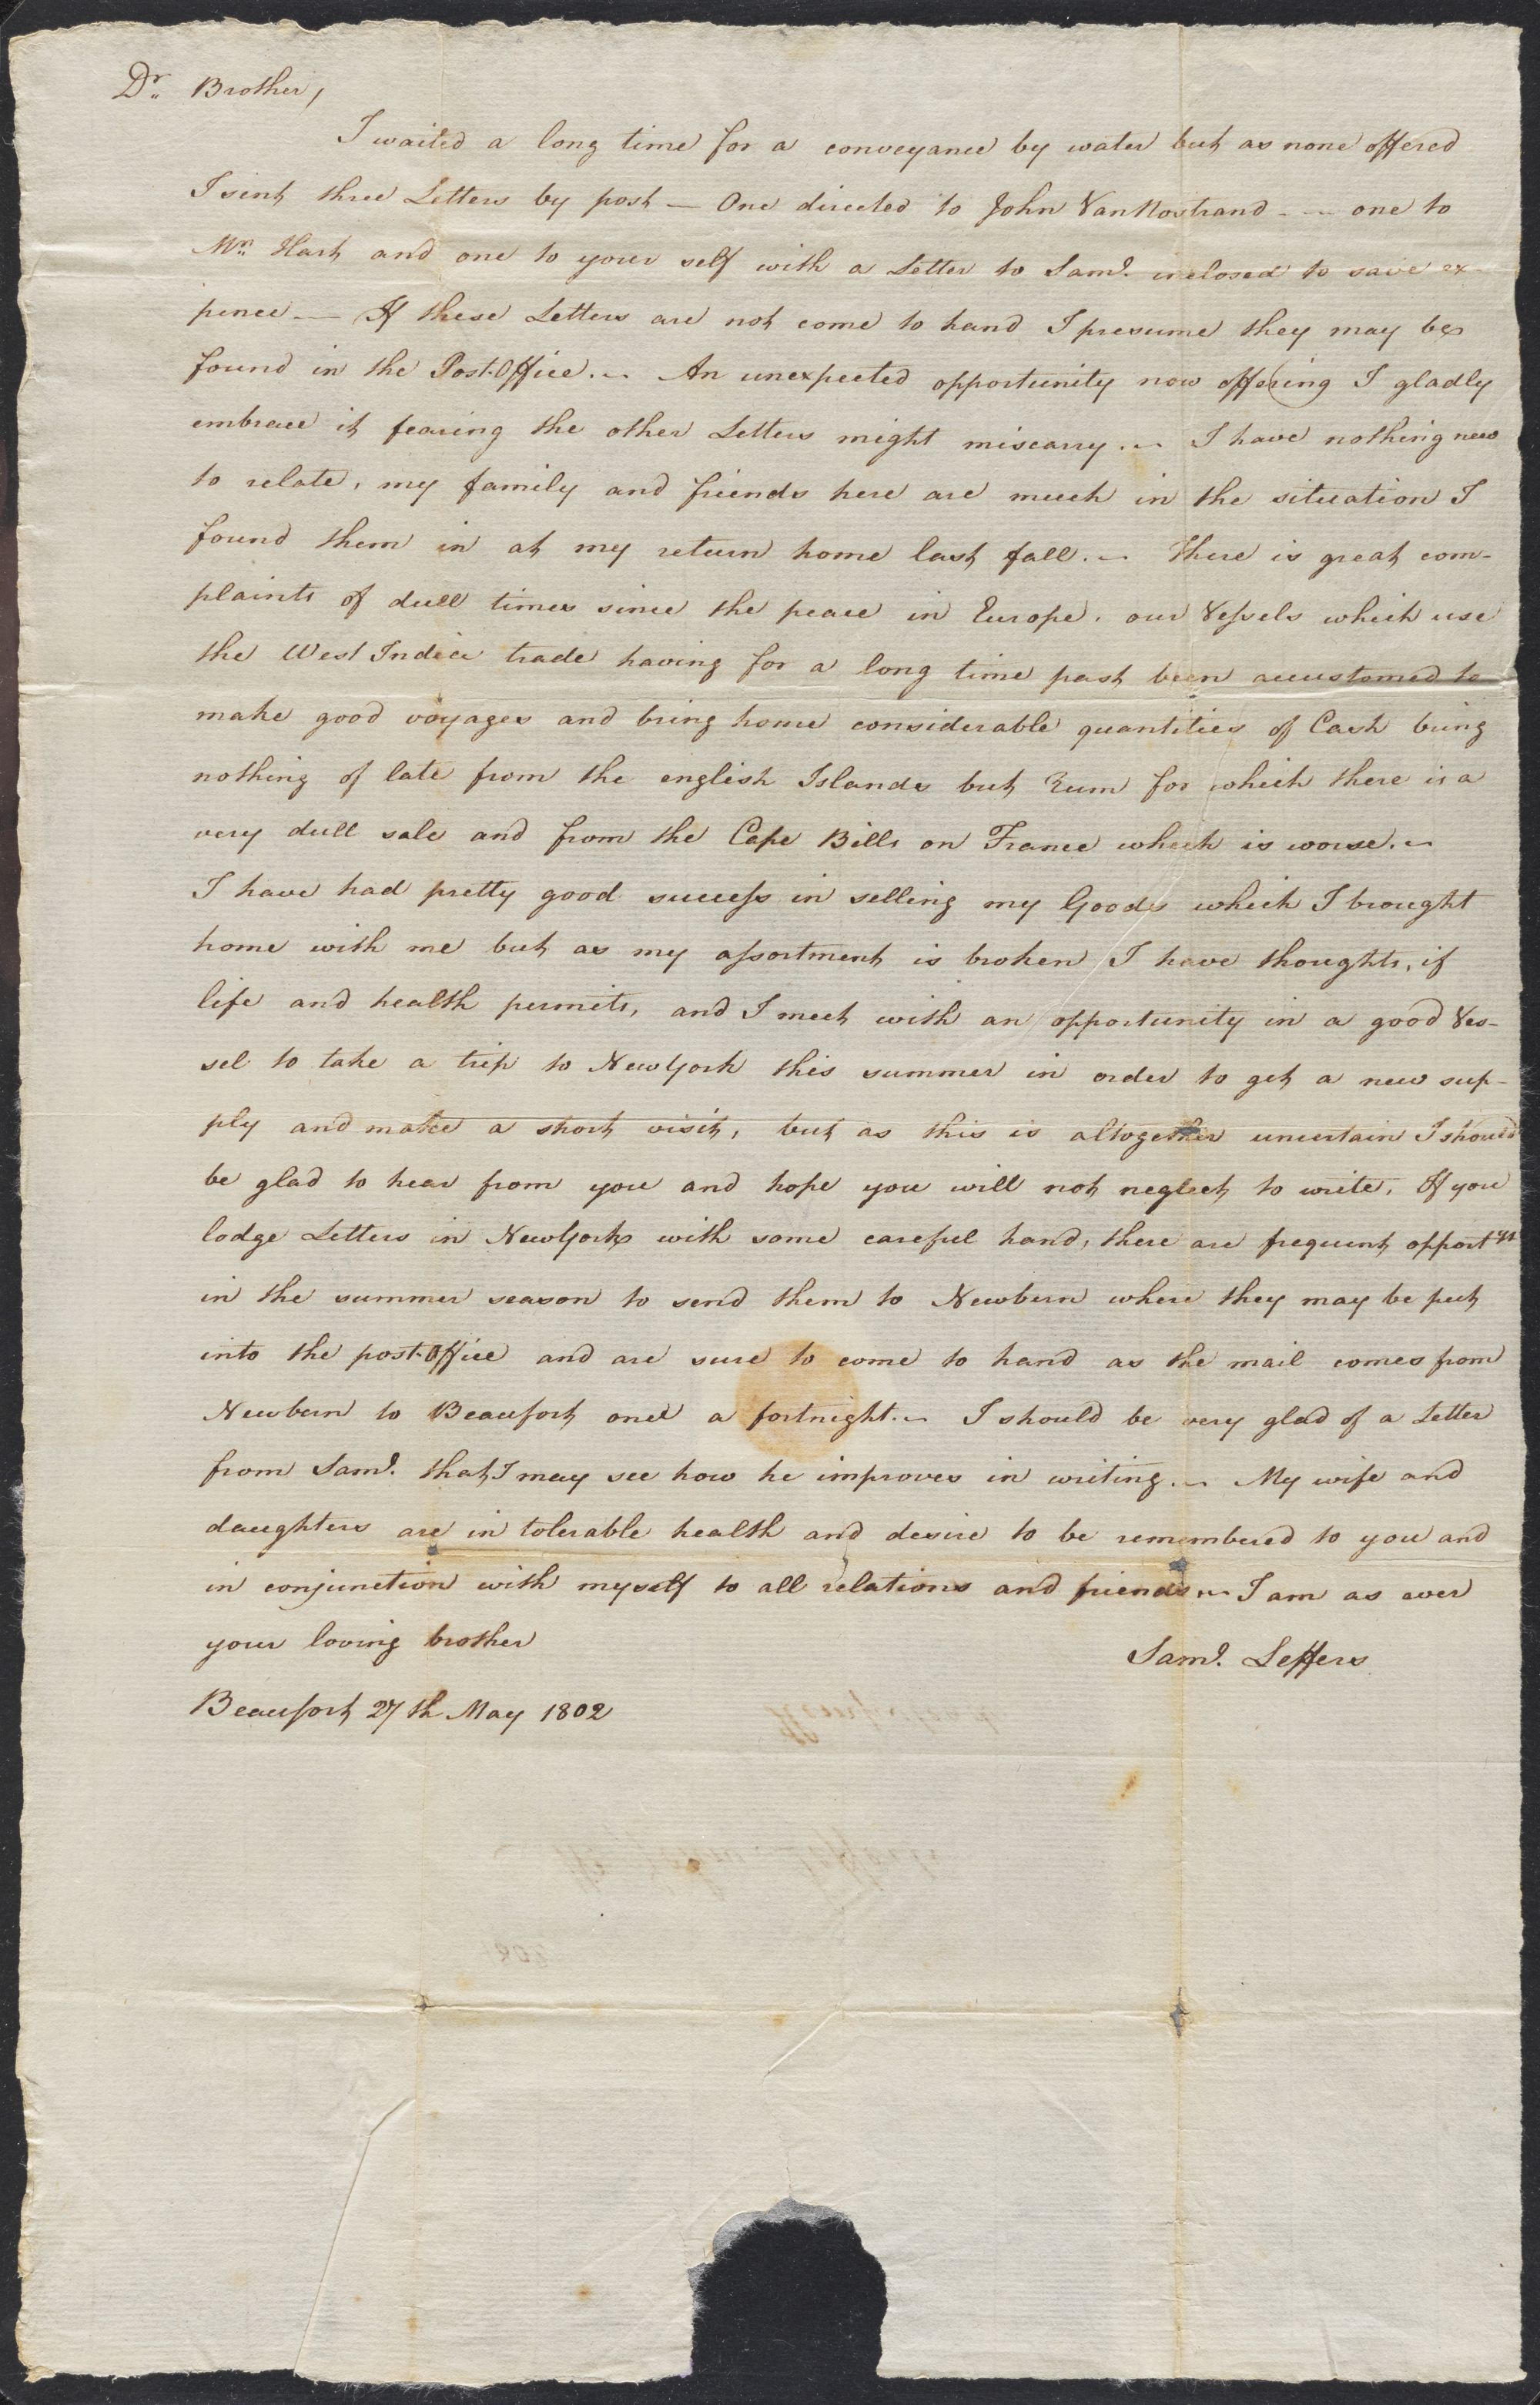 Dr. Brother,
I waited a long time for a conveyance by water but as none offered
I sent three Letters by post — One directed to John VanNostrand - - one to
Mr. Hart and one to your self with a Letter to Saml. inclosed to save ex-
pence — If these Letters are not come to hand I presume they may be
found in the Post-Office. - An unexpected opportunity now offering I gladly
embrace it fearing the other Letters might miscarry. - I have nothing new
to relate, my family and friends here are much in the situation I
found them in at my return home last fall. - There is great com-
plaints of dull times since the peace in Europe. our Vessels which use
the West India trade having for a long time past been accustomed to
make good voyages and bring home considerable quantities of Cash bring
nothing of late from the english Islands but Rum for which there is a
very dull sale and from the Cape Bills on France which is worse. -
I have had pretty good success in selling my Goods which I brought
home with me but as my assortment is broken I have thoughts, if
life and health permits, and I meet with an opportunity in a good Ves-
sel to take a trip to NewYork this summer in order to get a new sup-
ply and make a short visit, but as this is altogether uncertain I should
be glad to hear from you and hope you will not neglect to write, If you
lodge Letters in NewYork with some careful hand, there are frequent opportys
in the summer season to send them to Newbern where they may be put
into the post-Office and are sure to come to hand as the mail comes from
Newbern to Beaufort once a fortnight. - I should be very glad of a Letter
from Saml. that I may see how he improves in writing. - My wife and
daughters are in tolerable health and desire to be remembered to you and
in conjunction with myself to all relations and friends. - I am as ever
your loving brother
Saml. Leffers
Beaufort 27th May 1802